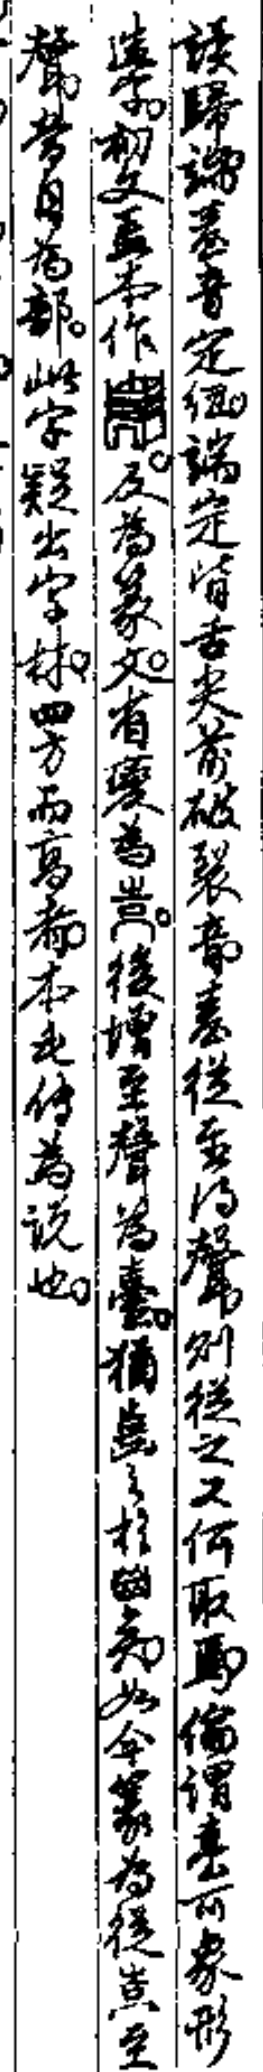 讀歸端。臺音定紐。端定皆舌尖前破裂音。臺從至得聲。則從之又何取焉。倫謂臺可象形
造字。初文蓋本作。及為篆文。省變為。後增至聲為臺。猶之於也。如今篆為從至
聲。當自為部。此字疑出字林。四方而高者。本毛傳為說也。